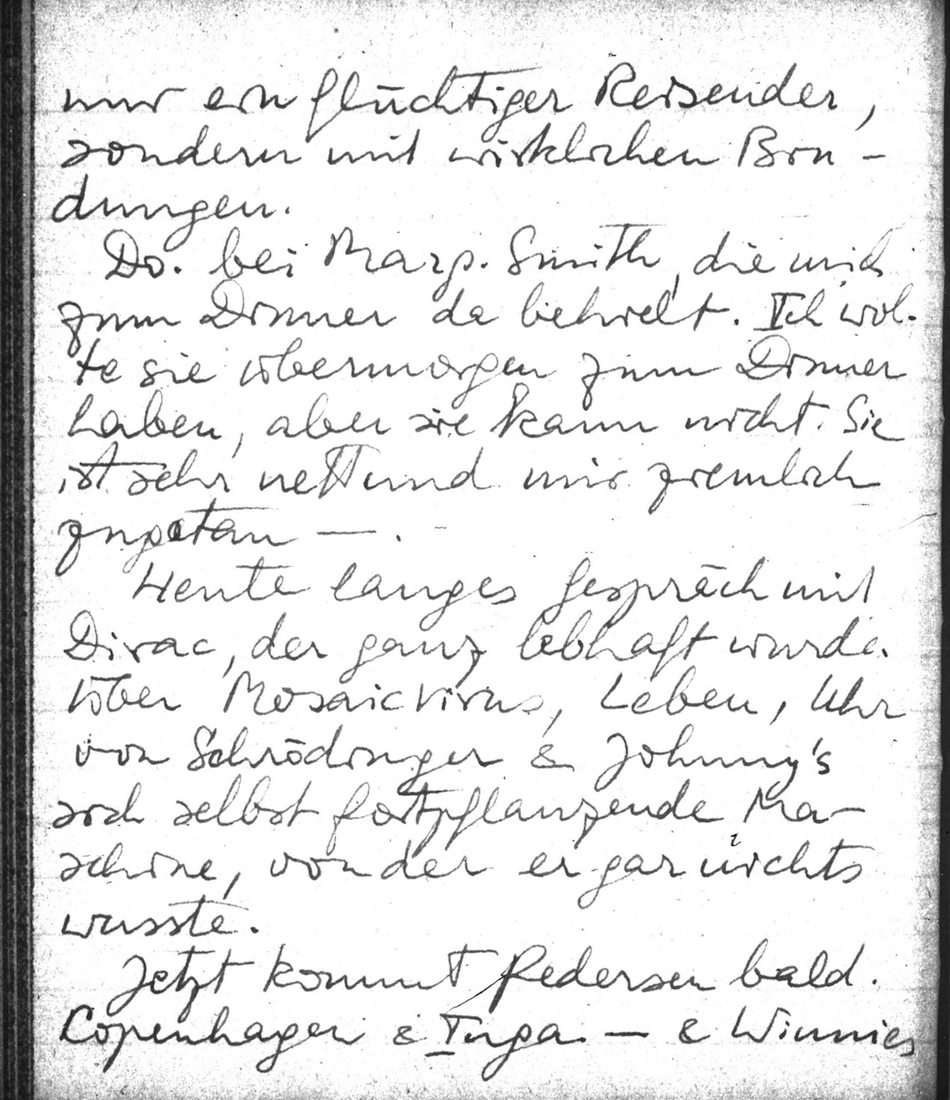 nur ein flüchtiger Reisender,
sondern mit wirklichen Bin-
dungen.
Do. bei Marg. Smith, die mich
zum Dinner da behielt. Ich wol-
te sie übermorgen zum Dinner
haben, aber sie kann nicht. Sie
ist sehr nett und mir ziemlich
zugetan —.
Heute langes Gespräch mit
Dirac, der ganz lebhaft wurde.
Über Mosaicvirus, Leben, Uhr
von Schrödinger & Johnny's
sich selbst fortpflanzende Ma-
schine, von der er gar nichts
wusste.
Jetzt kommt Pedersen bald.
Copenhagen & Inga — & Winnies